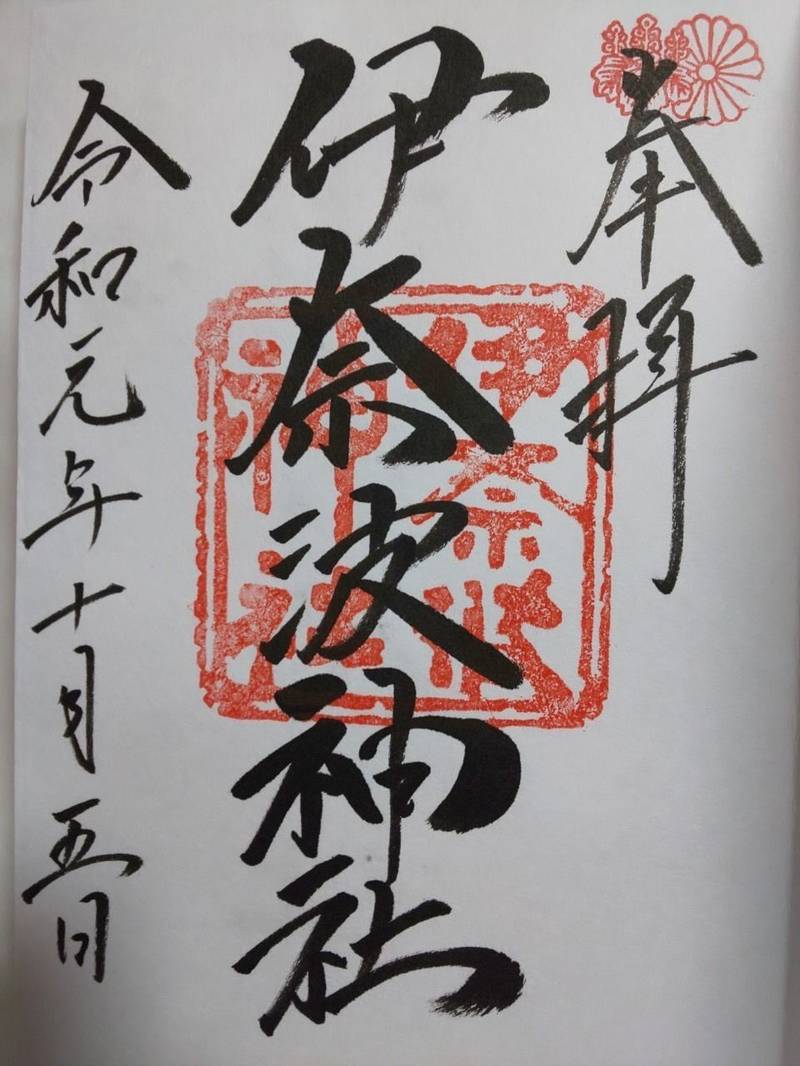 奉拝
伊奈波神社
伊奈波
神社
令和元年十月五日